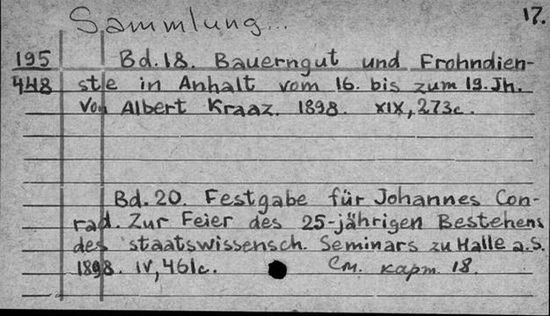 Sammlung... 17.
195 Bd. 18. Bauerngut und Frohndien-
448 ste in Anhalt vom 16. bis zum 19. Jh.
Von Albert Kraaz. 1898. XIX, 273c.
Bd. 20. Festgabe für Johannes Con-
rad. Zur Feier des 25-jährigen Bestehens
des staatswissensch. Seminars zu Halle a. S.
1898. IV, 461c. См. карт. 18.